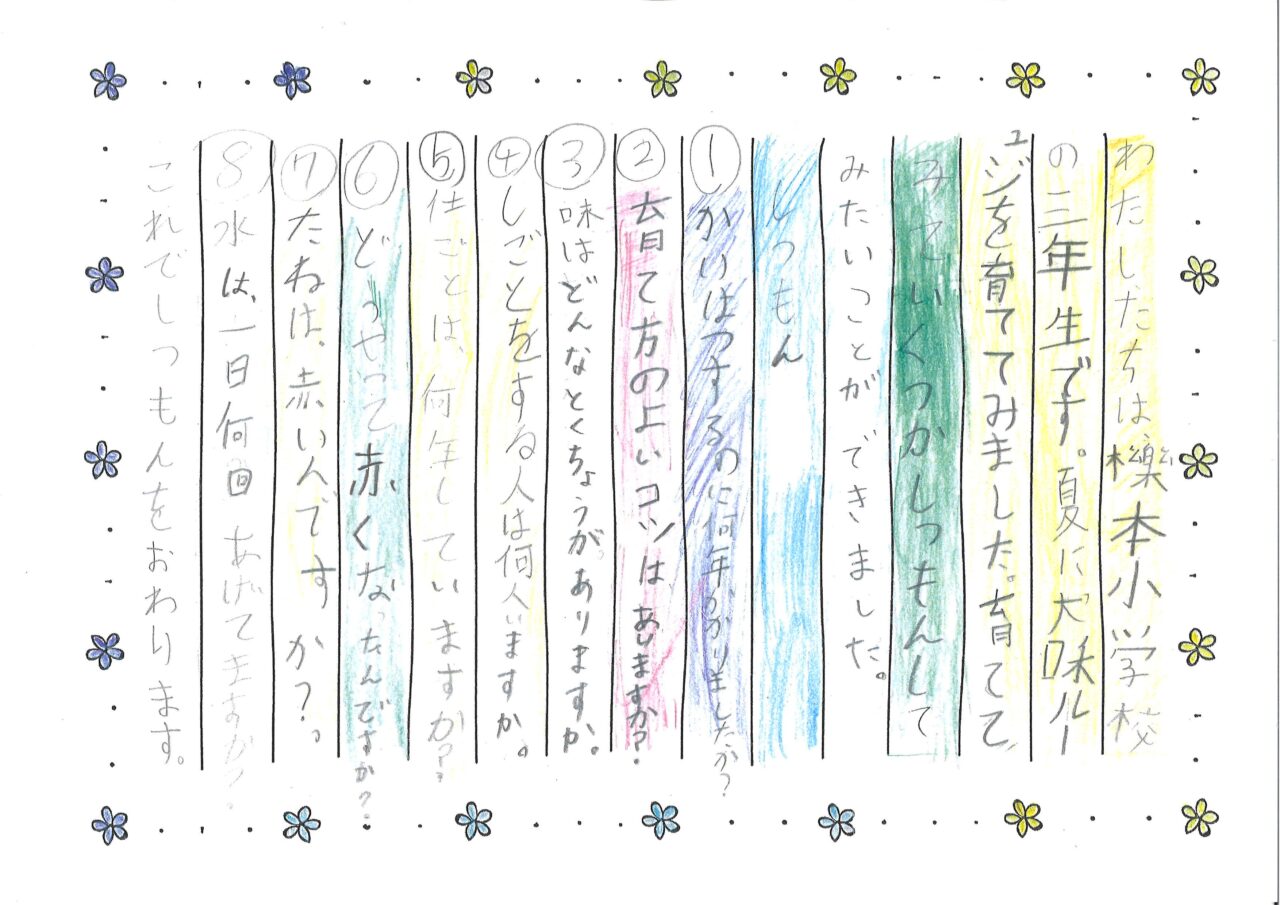 わたしたちは、櫟本小学校
の三年生です。夏に犬味ルー
ュジを育ててみました。育てて、
みていくつかしつもんして
みたいことができました。
しつもん
①かいはつするのに何年かかりましたか？
②育て方のよいコツはありますか？
③味はどんなとくちょうがありますか。
④しごとをする人は何人いますか。
⑤仕ごとは、何年していますか？
⑥どうやって赤くなったんですか？
⑦たねは、赤いんですか？
⑧水は、一日何回あげてますか？
これでしつもんをおわります。